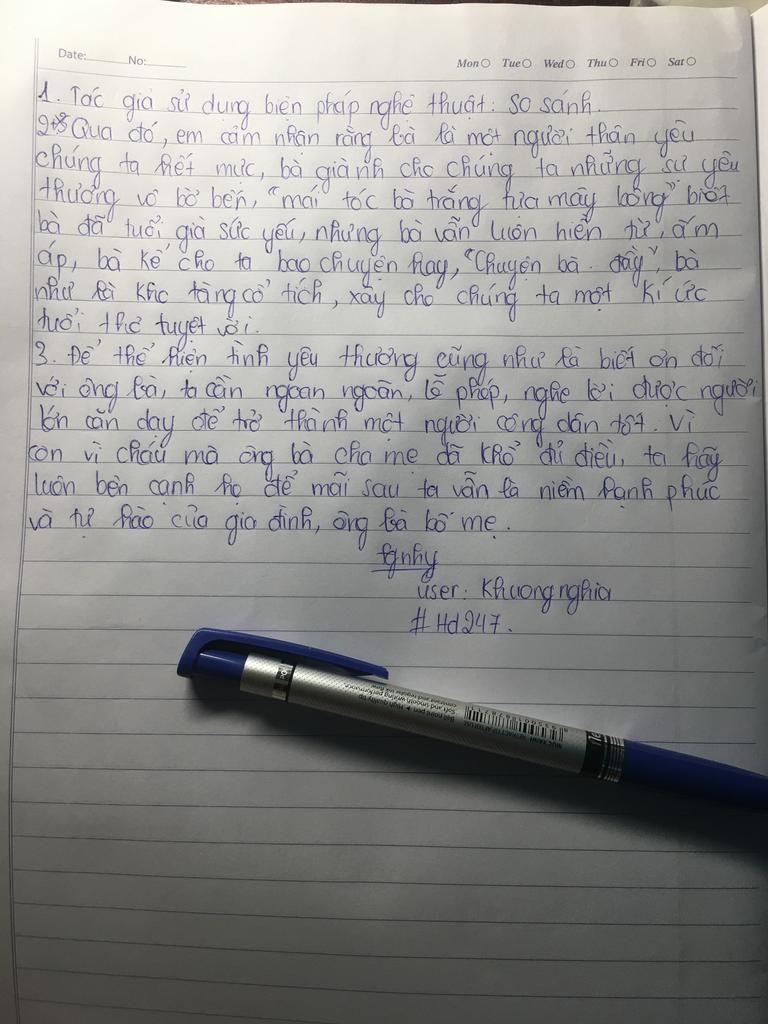 Date: No: Mon Tue Wed Thu Fri Sat
1. Tác giả sử dụng biện pháp nghệ thuật: so sánh.
2. Qua đó, em cảm nhận rằng bà là một người thân yêu
chúng ta hết mực, bà giành cho chúng ta những sự yêu
thương vô bờ bến, "mái tóc bà trắng tựa mây bông" biết
bà đã tuổi già sức yếu, nhưng bà vẫn luôn hiền từ, ấm
áp, bà kể cho ta bao chuyện hay, "Chuyện bà đầy", bà
như là kho tàng cổ tích, xây cho chúng ta một kí ức
tuổi thơ tuyệt vời.
3. Để thể hiện tình yêu thương cũng như là biết ơn đối
với ông bà, ta cần ngoan ngoãn, lễ phép, nghe lời được người
lớn căn dạy để trở thành một người công dân tốt. Vì
con vì cháu mà ông bà cha mẹ đã khổ đủ điều, ta hãy
luôn bên cạnh họ để mãi sau ta vẫn là niềm hạnh phúc
và tự hào của gia đình, ông bà bố mẹ.
user: Khuongnghia
#Hd247.
Ball point pen High quality tip
Soft and smooth writing performance